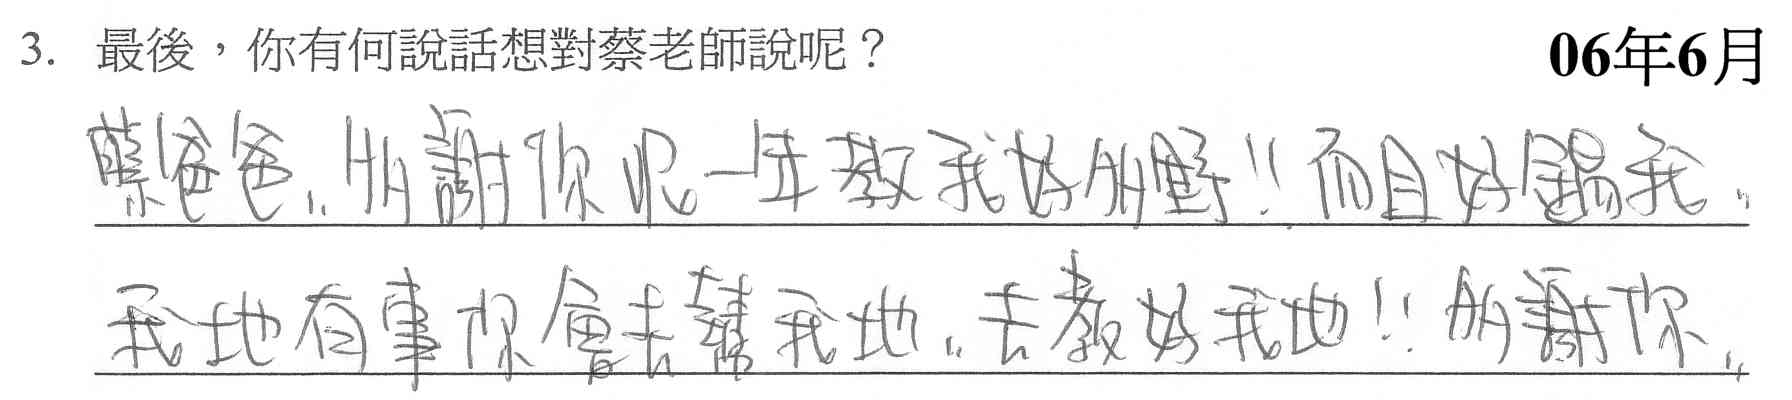 3. 最後，你有何說話想對蔡老師說呢？
06年6月
蔡爸爸，，多謝你呢一年教我好多野!! 而且好錫我，，
我地有事你會去幫我地，，去教好我地!! 多謝你，，